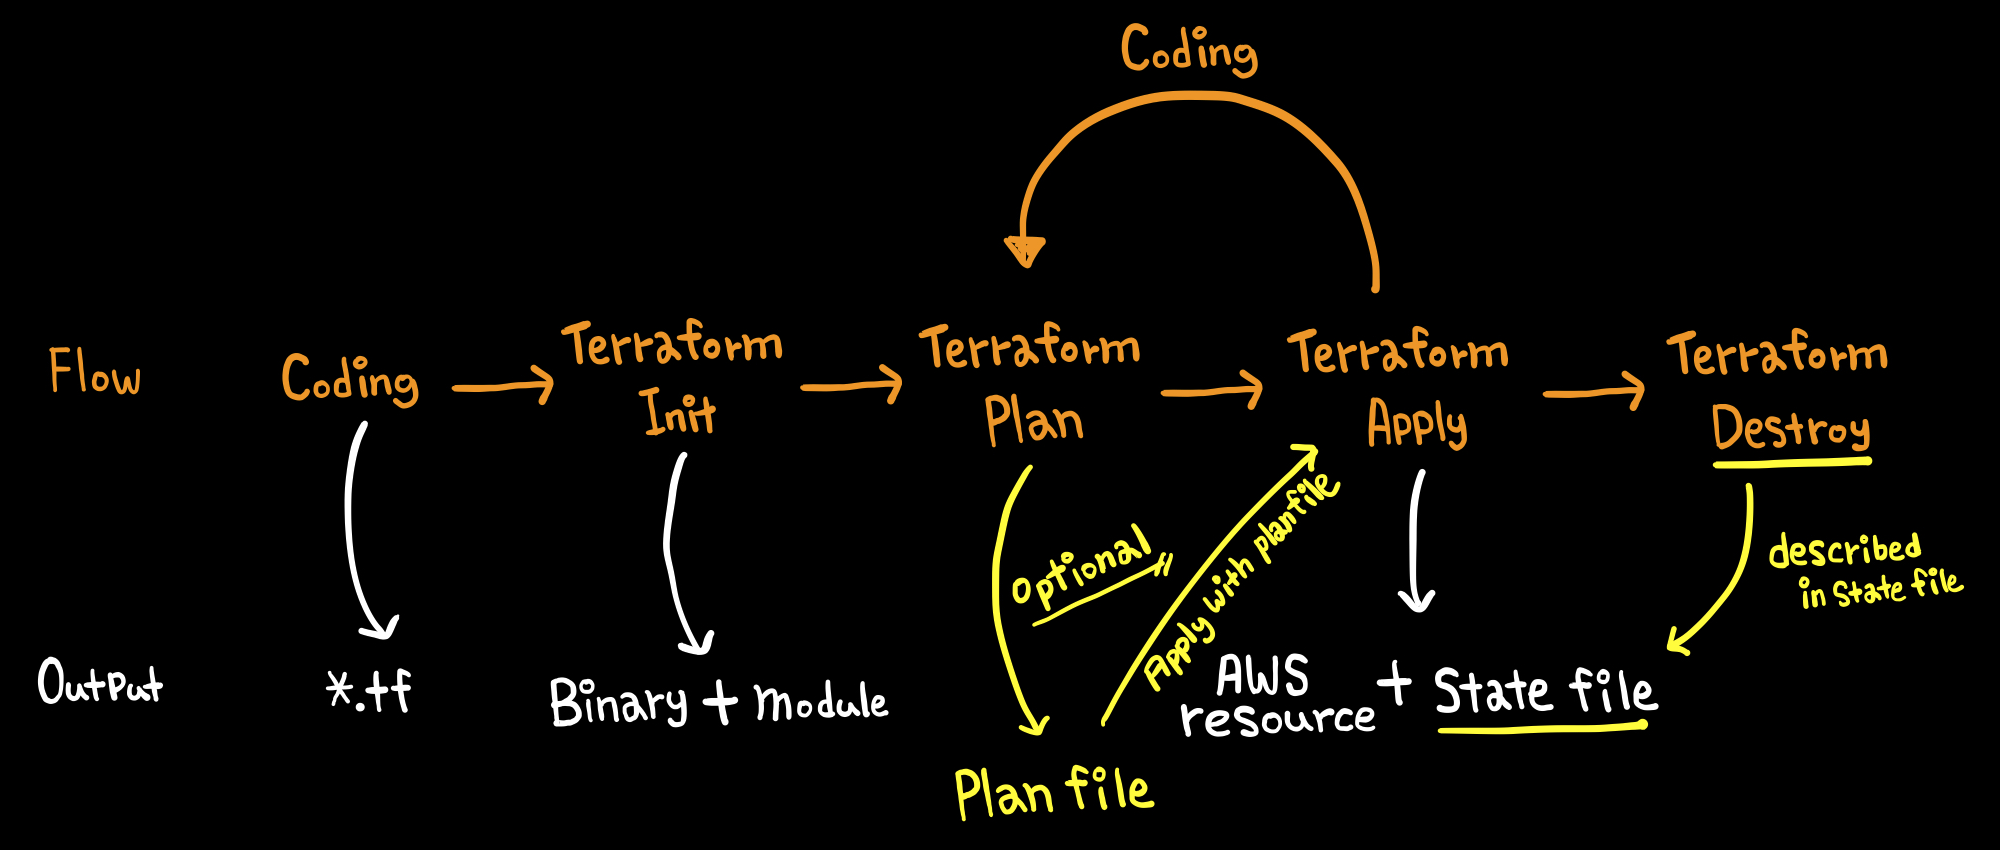 Coding
Flow
Coding
Terraform
Init
Terraform
Plan
Terraform
Apply
Terraform
Destroy
Optional
Apply with planfile
described
in state file
Output
*.tf
Binary + module
AWS
resource
+ State file
Plan file